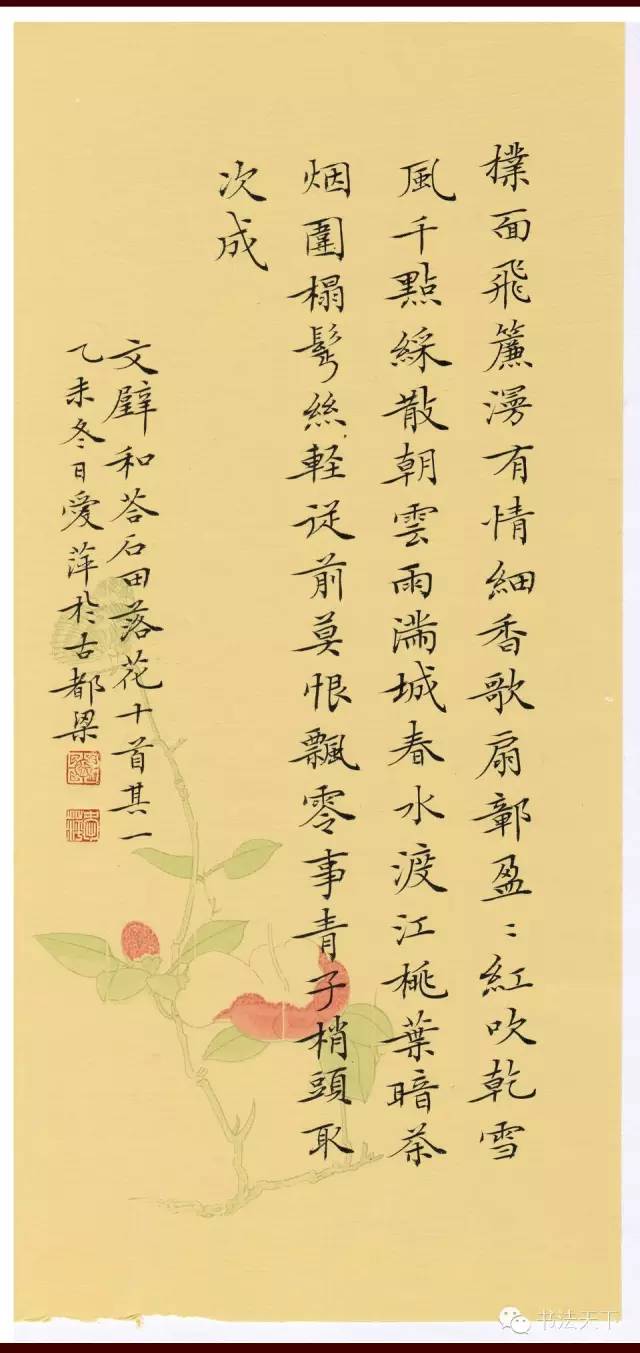 撲面飛簾漫有情細香歌扇鄣盈〻紅吹乾雪
風千點綵散朝雲雨滿城春水渡江桃葉暗茶
烟圍榻鬢絲軽從前莫恨飄零事青子梢頭取
次成
文壁和荅石田落花十首其一
乙未冬日愛萍於古都梁
书法天下